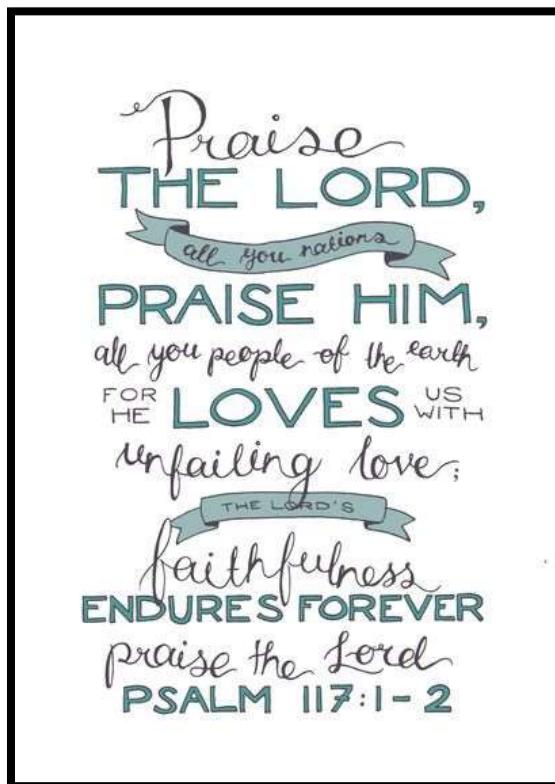 Praise
THE LORD,
all you nations
PRAISE HIM,
all you people of the earth
FOR HE LOVES US WITH
unfailing love;
THE LORD'S
faithfulness
ENDURES FOREVER
praise the Lord
PSALM 117:1-2